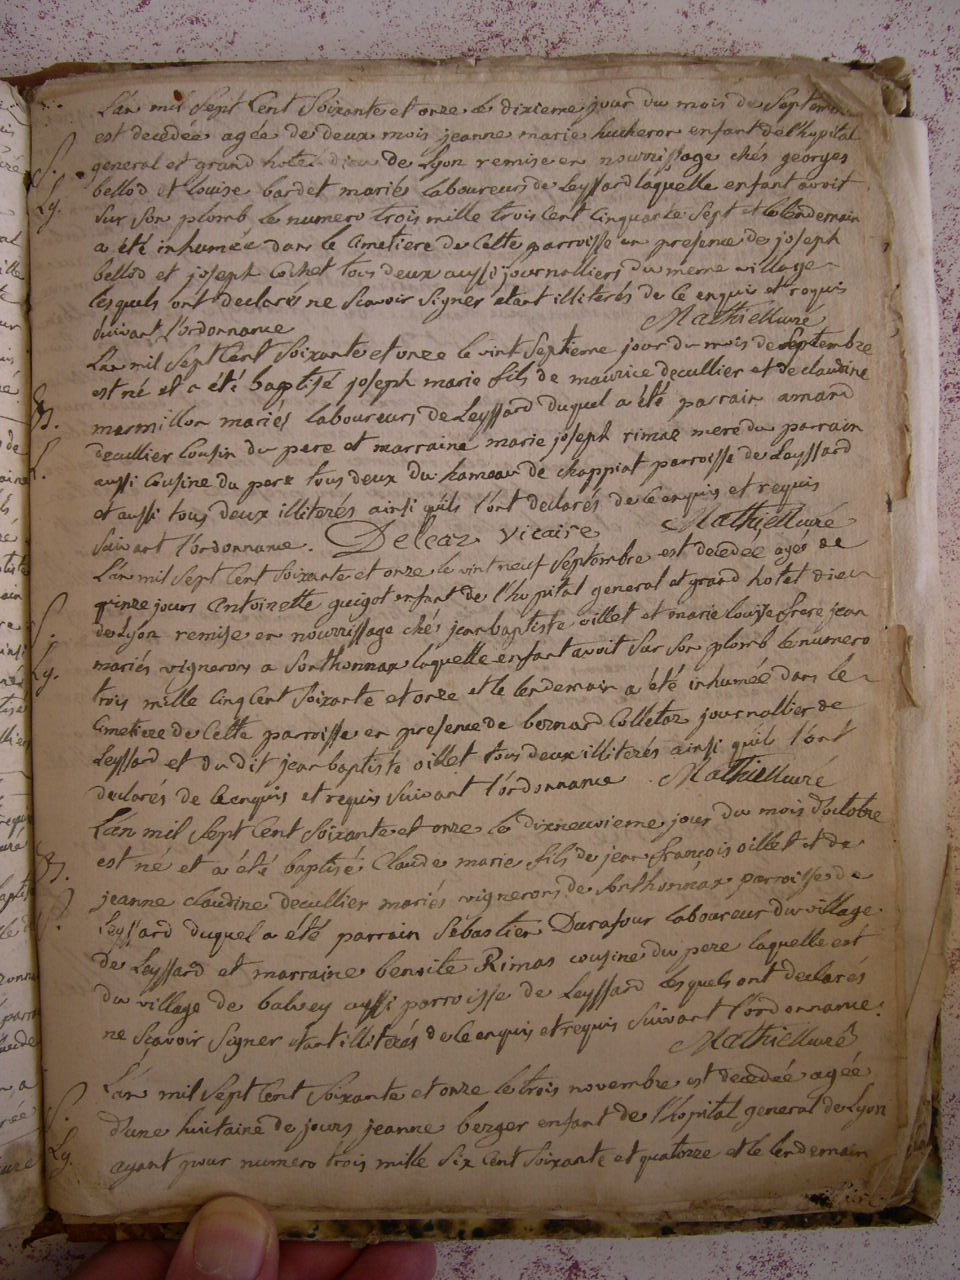 L'an mil sept cent soixante et onze le dixieme jour du mois de septembre
est decedée agée de deux mois jeanne marie hucheron enfant de l'hopital
S. general et grand hotel dieu de Lyon remise en nourrissage chés georges
Ly. bellod et louise bardet mariés laboureurs de Leyssard laquelle enfant avoit
sur son plomb le numero trois mille trois cent cinquante sept et le lendemain
a été inhumée dans le cimetiere de cette parroisse en presence de joseph
bellod et joseph cochet tous deux aussi journalliers du meme village
lesquels ont declarés ne scavoir signer etant illiterés de ce enquis et requis
suivant l'ordonnance Mathieu curé
L'an mil sept cent soixante et onze le vint septieme jour du mois de septembre
est né et a été baptisé joseph marie fils de maurice decullier et de claudine
B. marmillon mariés laboureurs de Leyssard duquel a été parrain amand
L. decullier cousin du pere et marraine marie joseph rimas mere du parrain
aussi cousine du pere tous deux du hameau de chappiat parroisse de Leyssard
et aussi tous deux illiterés ainsi quils l'ont declarés de ce enquis et requis
suivant l'ordonnance. Delcaz vicaire Mathieu curé
L'an mil sept cent soixante et onze le vint neuf septembre est decedée agée de
S. quinze jours antoinette guigot enfant de l'hopital general et grand hotel dieu
de Lyon remise en nourrissage chés jean baptiste oillet et marie louise frere jean
Ly. mariés vignerons a Sonthonnax laquelle enfant avoit sur son plomb le numero
trois mille cinq cent soixante et onze et le lendemain a été inhumée dans le
cimetiere de cette parroisse en presence de bernard colletaz journallier de
Leyssard et du dit jean baptiste oillet tous deux illiterés ainsi quils l'ont
declarés de ce enquis et requis suivant l'ordonnance Mathieu curé
L'an mil sept cent soixante et onze le dixneuvieme jour du mois d'octobre
B. est né et a été baptisé Claude marie fils de jean françois oillet et de
jeanne claudine decullier mariés vignerons de Sonthonnax parroisse de
Leyssard duquel a été parrain Sébastien Durafour laboureur du village
de Leyssard et marraine benoite Rimas cousine du pere laquelle est
du village de balvey aussi parroisse de Leyssard lesquels ont declarés
ne scavoir signer etant illiterés de ce enquis et requis suivant l'ordonnance.
Mathieu curé
S. L'an mil sept cent soixante et onze le trois novembre est decedée agée
d'une huitaine de jours jeanne berger enfant de l'hopital general de Lyon
Ly. ayant pour numero trois mille six cent soixante et quatorze et le lendemain